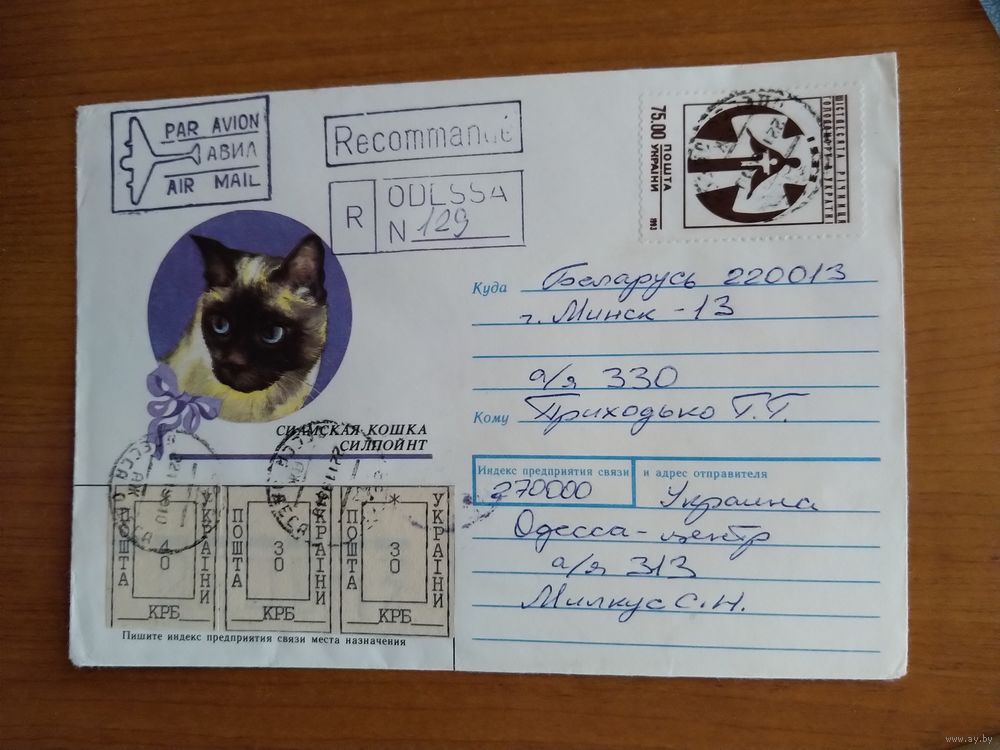 PAR AVION
АВИА
AIR MAIL
Recommandé
R
ODESSA
N 129
75.00 ПОШТА
УКРАЇНИ
1993
ШІСТДЕСЯТА РІЧНИЦЯ
ГОЛОДОМОРУ В УКРАЇНІ
Куда Беларусь 220013
г. Минск - 13
а/я 330
Кому Приходько Г.Г.
СИАМСКАЯ КОШКА
СИЛПОЙНТ
Индекс предприятия связи и адрес отправителя
270000 Украина
Одесса-центр
а/я 313
Милкус С.Н.
ПОШТА
40
УКРАЇНИ
КРБ
ПОШТА
30
УКРАЇНИ
КРБ
ПОШТА
*
30
УКРАЇНИ
КРБ
Пишите индекс предприятия связи места назначения
www.ay.by